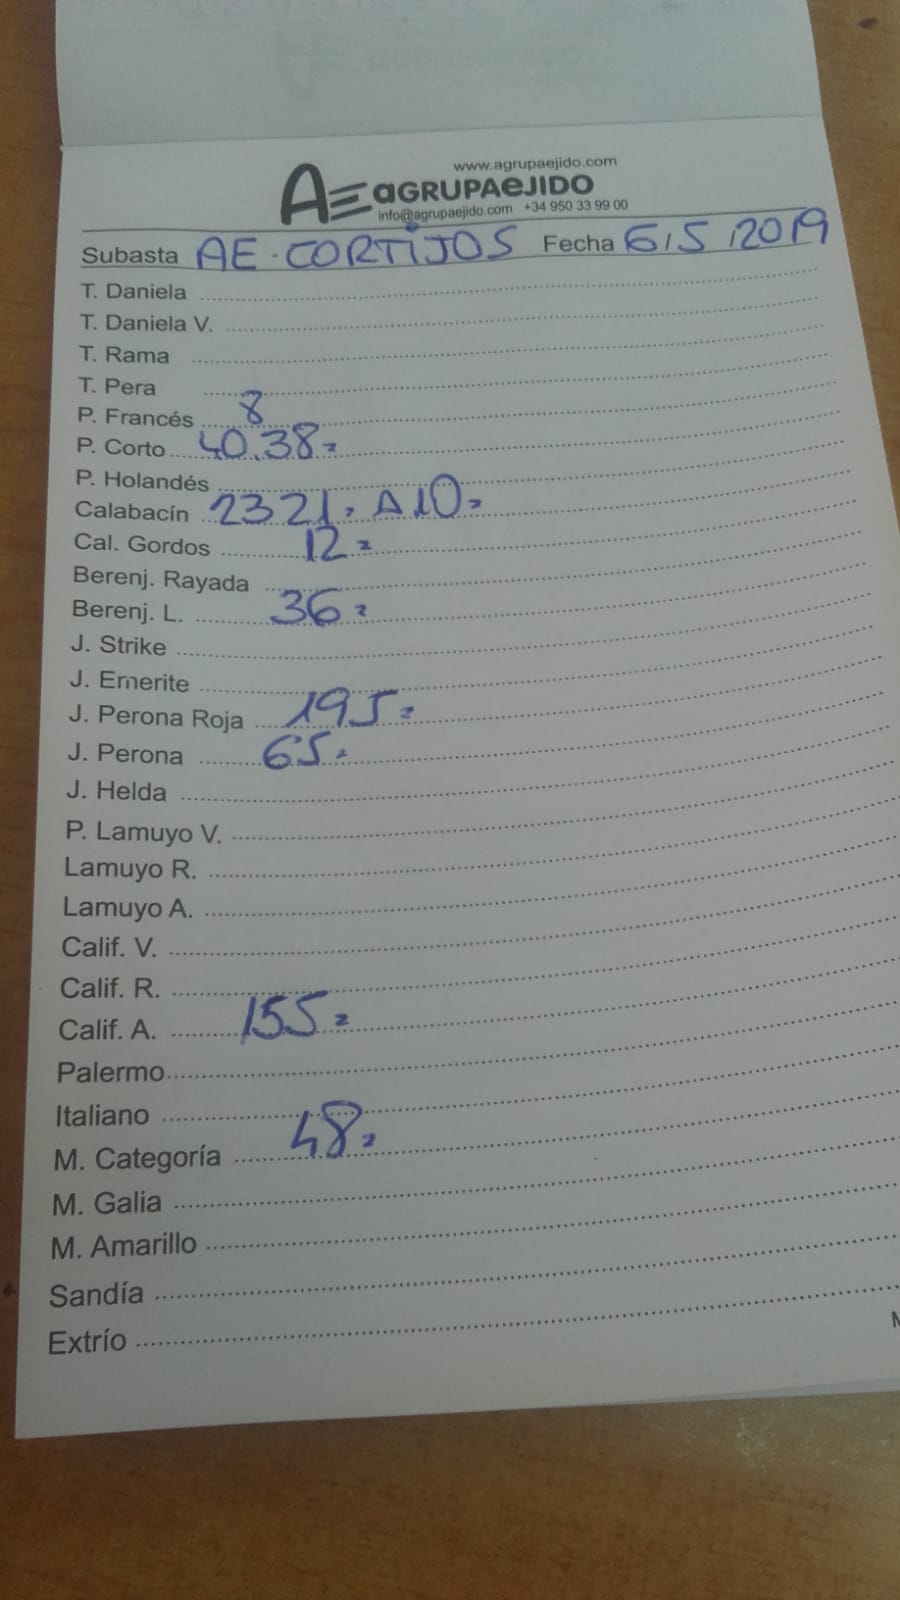 www.agrupaejido.com
AE aGRUPAeJIDO
info@agrupaejido.com +34 950 33 99 00
Subasta AE-CORTIJOS Fecha 6/5/2019
T. Daniela
T. Daniela V.
T. Rama
T. Pera
P. Francés 8
P. Corto 40.38-
P. Holandés
Calabacín 23 21- A 10-
Cal. Gordos 12-
Berenj. Rayada
Berenj. L. 36-
J. Strike
J. Emerite
J. Perona Roja 195-
J. Perona 65-
J. Helda
P. Lamuyo V.
Lamuyo R.
Lamuyo A.
Calif. V.
Calif. R.
Calif. A. 155-
Palermo
Italiano
M. Categoría 48-
M. Galia
M. Amarillo
Sandía
Extrío